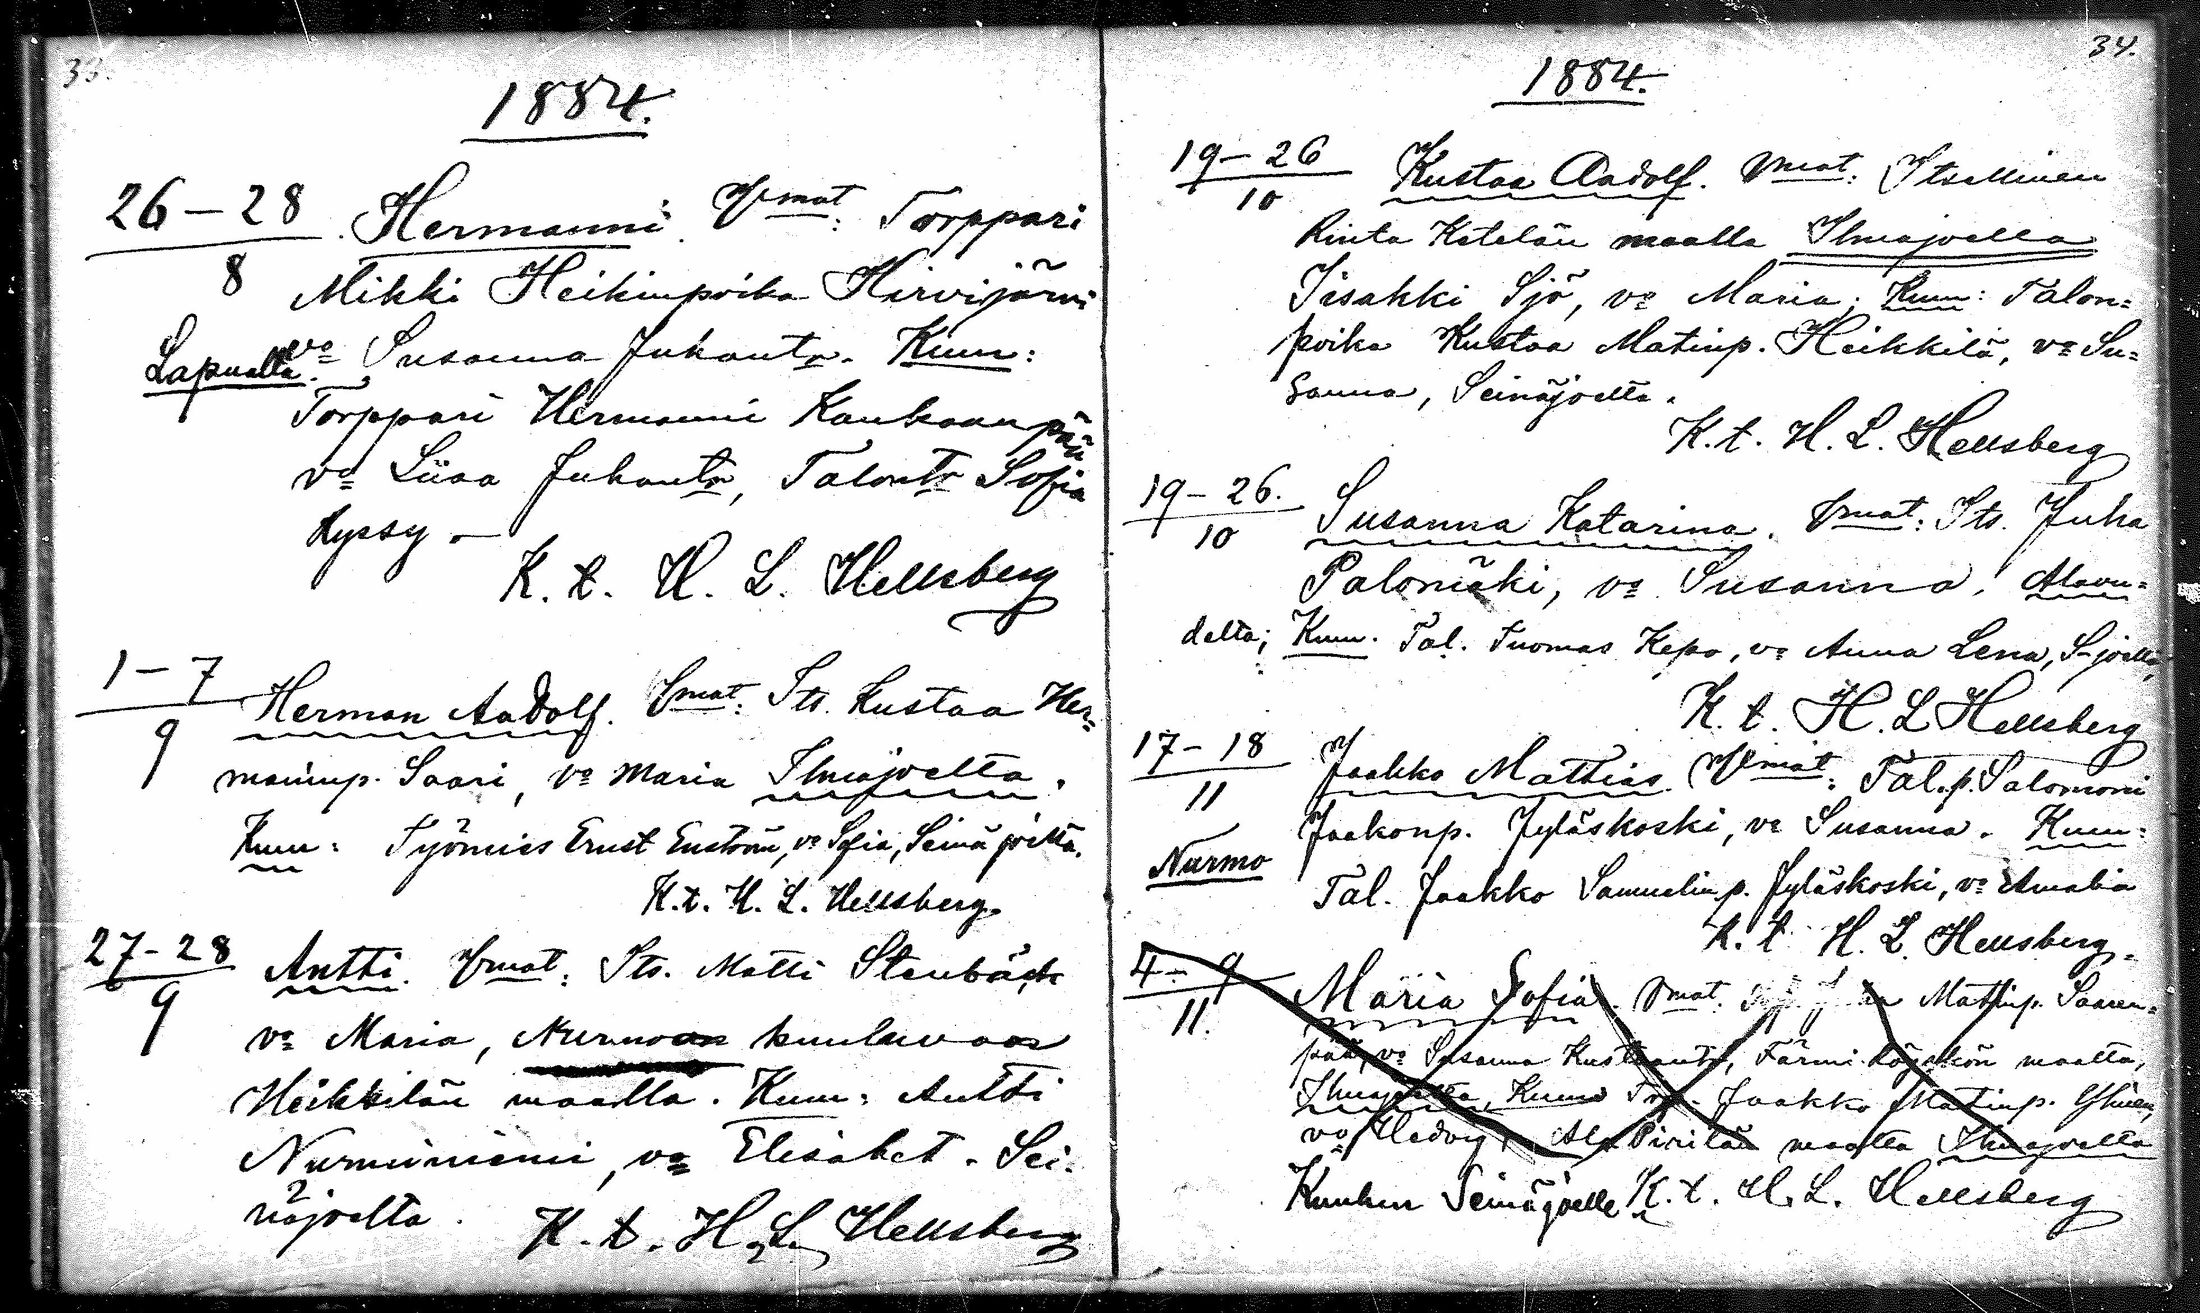 33.
1884.
26–28
8
Hermanni. Vmat: Torppari
Mikki Heikinpoika Hirvijärvi
Lapualta. vo Susanna Juhantr. Kum:
Torppari Hermanni Kankaanpää
vo Liisa Juhantr, Talontr Sofia
Kyssy.–
K. t. H. L. Hellsberg
1–7
9
Herman Aadolf. Vmat: Its. Kustaa Her=
maninp. Saari, vo Maria Ilmajoelta.
Kum: Työmies Ernst Enström, vo Sofia, Seinäjoelta.
K. t. H. L. Hellsberg.
27–28
9
Antti. Vmat: Its. Matti Stenbäck
vo Maria, Nurmoon kuuluvaan
Heikkilän maalla. Kum: Antti
Nurminiemi, vo Elisabet. Sei=
näjoelta.
K. t. H. L. Hellsberg
34.
1884.
19–26
10
Kustaa Aadolf. Vmat: Itsellinen
Rinta Katelän maalla Ilmajoella
Iisakki Sjö, vo Maria; Kum: Talon=
poika Kustaa Matinp. Heikkilä, vo Su=
sanna, Seinäjoelta.
K. t. H. L. Hellsberg
19–26.
10
Susanna Katarina. Vmat: Its. Juha
Palomäki, vo Susanna, Alavu=
delta; Kum. Tal. Tuomas Kepo, vo Anna Lena, S-joelta,
K. t. H. L Hellsberg
17–18
11
Nurmo
Jaakko Mattias. Vmat: Tal.p. Salomoni
Jaakonp. Jyläskoski, vo Susanna. Kum:
Tal. Jaakko Samuelinp. Jyläskoski, vo Amalia
K. t H. L. Hellsberg.
4–9
11.
Maria Sofia. Vmat: Matinp. Saaren=
pää, vo Susanna Kustaantr, Färmi maalta,
Ilmajoelta, Kum: Jaakko Matinp.
vo Hedvig, Ala Pirilän maalta Ilmajoelta
Kuuluu Seinäjoelle K. t. H. L. Hellsberg